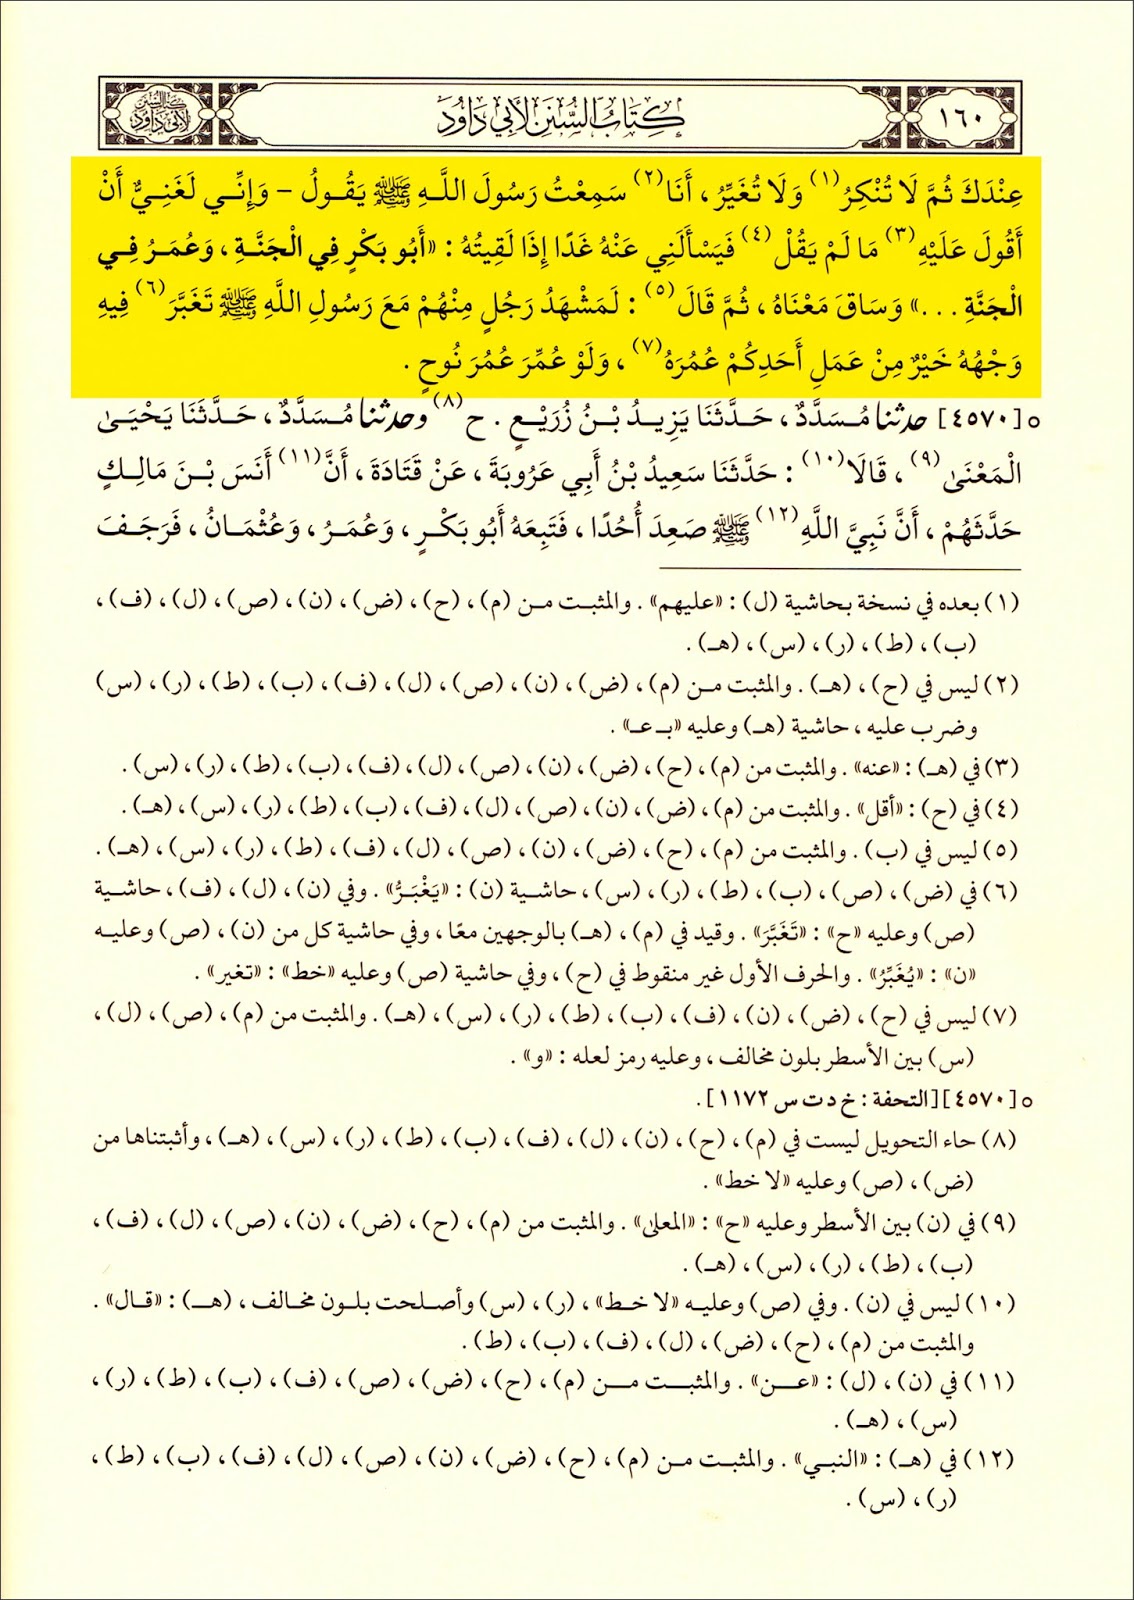 ١٦٠
كِتَابُ السُّنَنِ لِأَبِي دَاوُد
كتاب السنن لأبي داود
عِنْدَكَ ثُمَّ لَا تُنْكِرُ(١) وَلَا تُغَيِّرُ ، أَنَا(٢) سَمِعْتُ رَسُولَ اللَّهِ ﷺ يَقُولُ - وَإِنِّي لَغَنِيٌّ أَنْ
أَقُولَ عَلَيْهِ(٣) مَا لَمْ يَقُلْ(٤) فَيَسْأَلَنِي عَنْهُ غَدًا إِذَا لَقِيتُهُ : «أَبُو بَكْرٍ فِي الْجَنَّةِ ، وَعُمَرُ فِي
الْجَنَّةِ . . .» وَسَاقَ مَعْنَاهُ ، ثُمَّ قَالَ(٥) : لَمَشْهَدُ رَجُلٍ مِنْهُمْ مَعَ رَسُولِ اللَّهِ ﷺ تَغَبَّرَ(٦) فِيهِ
وَجْهُهُ خَيْرٌ مِنْ عَمَلِ أَحَدِكُمْ عُمُرَهُ(٧) ، وَلَوْ عُمِّرَ عُمُرَ نُوحٍ .
○[٤٥٧٠] حدثنا مُسَدَّدٌ ، حَدَّثَنَا يَزِيدُ بْنُ زُرَيْعٍ . ح(٨) وحدثنا مُسَدَّدٌ ، حَدَّثَنَا يَحْيَىٰ
الْمَعْنَىٰ(٩) ، قَالَا(١٠) : حَدَّثَنَا سَعِيدُ بْنُ أَبِي عَرُوبَةَ ، عَنْ قَتَادَةَ ، أَنَّ(١١) أَنَسَ بْنَ مَالِكٍ
حَدَّثَهُمْ ، أَنَّ نَبِيَّ اللَّهِ(١٢) ﷺ صَعِدَ أُحُدًا ، فَتَبِعَهُ أَبُو بَكْرٍ ، وَعُمَرُ ، وَعُثْمَانُ ، فَرَجَفَ
(١) بعده في نسخة بحاشية (ل) : «عليهم» . والمثبت من (م) ، (ح) ، (ض) ، (ن) ، (ص) ، (ل) ، (ف) ،
(ب) ، (ط) ، (ر) ، (س) ، (هـ) .
(٢) ليس في (ح) ، (هـ) . والمثبت من (م) ، (ض) ، (ن) ، (ص) ، (ل) ، (ف) ، (ب) ، (ط) ، (ر) ، (س)
وضرب عليه ، حاشية (هـ) وعليه «بـ عـ» .
(٣) في (هـ) : «عنه» . والمثبت من (م) ، (ح) ، (ض) ، (ن) ، (ص) ، (ل) ، (ف) ، (ب) ، (ط) ، (ر) ، (س) .
(٤) في (ح) : «أقل» . والمثبت من (م) ، (ض) ، (ن) ، (ص) ، (ل) ، (ف) ، (ب) ، (ط) ، (ر) ، (س) ، (هـ) .
(٥) ليس في (ب) . والمثبت من (م) ، (ح) ، (ض) ، (ن) ، (ص) ، (ل) ، (ف) ، (ط) ، (ر) ، (س) ، (هـ) .
(٦) في (ض) ، (ص) ، (ب) ، (ط) ، (ر) ، (س) ، حاشية (ن) : «يَغْبَرُّ» . وفي (ن) ، (ل) ، (ف) ، حاشية
(ص) وعليه «ح» : «تَغَبَّرَ» . وقيد في (م) ، (هـ) بالوجهين معًا ، وفي حاشية كل من (ن) ، (ص) وعليه
«ن» : «يُغَبِّرُ» . والحرف الأول غير منقوط في (ح) ، وفي حاشية (ص) وعليه «خط» : «تغير» .
(٧) ليس في (ح) ، (ض) ، (ن) ، (ف) ، (ب) ، (ط) ، (ر) ، (س) ، (هـ) . والمثبت من (م) ، (ص) ، (ل) ،
(س) بين الأسطر بلون مخالف ، وعليه رمز لعله : «و» .
○[٤٥٧٠] [التحفة : خ د ت س ١١٧٢] .
(٨) حاء التحويل ليست في (م) ، (ح) ، (ن) ، (ل) ، (ف) ، (ب) ، (ط) ، (ر) ، (س) ، (هـ) ، وأثبتناها من
(ض) ، (ص) وعليه «لا خط» .
(٩) في (ن) بين الأسطر وعليه «ح» : «المعلى» . والمثبت من (م) ، (ح) ، (ض) ، (ن) ، (ص) ، (ل) ، (ف) ،
(ب) ، (ط) ، (ر) ، (س) ، (هـ) .
(١٠) ليس في (ن) . وفي (ص) وعليه «لا خط» ، (ر) ، (س) وأصلحت بلون مخالف ، (هـ) : «قال» .
والمثبت من (م) ، (ح) ، (ض) ، (ل) ، (ف) ، (ب) ، (ط) .
(١١) في (ن) ، (ل) : «عن» . والمثبت من (م) ، (ح) ، (ض) ، (ص) ، (ف) ، (ب) ، (ط) ، (ر) ،
(س) ، (هـ) .
(١٢) في (هـ) : «النبي» . والمثبت من (م) ، (ح) ، (ض) ، (ن) ، (ص) ، (ل) ، (ف) ، (ب) ، (ط) ،
(ر) ، (س) .